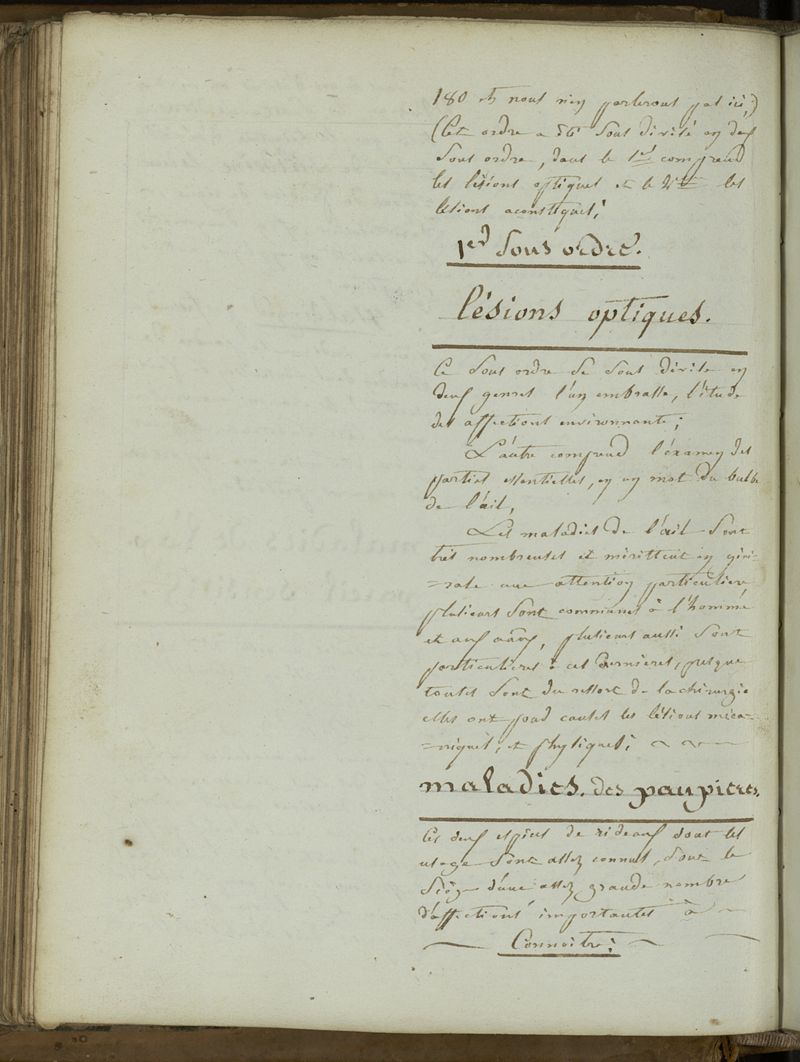 180 et nous n'en parlerons pas ici,)
(Cet ordre a été sous divisé en deux
sous ordre, dont le 1er comprend
les lésions optiques et le 2me les
lésions acoustiques;
1er Sous ordre.
lésions optiques.
Ce sous ordre se sous divise en
deux genres l'un embrasse, l'étude
des affections environnante;
L'autre comprend l'éxamen des
parties essentielles, en un mot du bulbe
de l'œil,
Les maladies de l'œil sont
très nombreuses et mérittent en géné-
=rale une attention particuliere
plusieurs sont communes à l'homme
et aux, plusieurs aussi sont
particulieres à ces dernieres, presque
toutes sont du ressort de la chirurgie
elles ont pour causes les lésions méca-
=niques, et physiques;
maladies. des paupieres.
Ces deux espèces de rideaux dont les
usage sont assez connus, sont le
siége d'une assez grande nombre
d'affections importantes à
Connoitre;